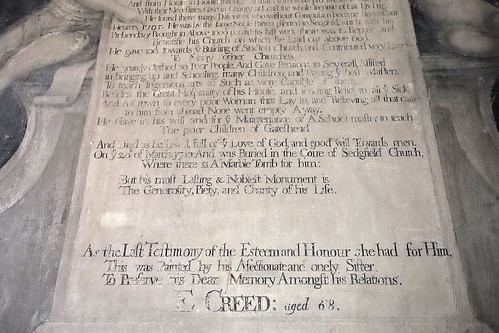 And from House to House
With their Necessities, Gave in Charity at the whole Income of that Living.
He found there many Dissenters who without Compulsion became his Constant
Hearers, He was by the same Noble Patron prefered to Sedgfeild, which with his
Prebendary Brought in Above 1000
Benefitt his Church on which he Laid out above
He gave too towards yᵉ Building of Sedgfeild Church, and Contributed very Largely
To Many other Churches
He yearly clothed 10 Poor People, And Gave Pensions to Severall, Assisted
in bringing up and Schooling many Children, and Paying yᵉ Masters
To teach Ingenious Arts to Such as were Capable of them.
Besides the Great Hospitality of his House, and sending Relief to all yᵉ Sick
And A Crown to every poor Woman that Lay In, and Relieving all that came
to him from abroad None went Empty Away.
He Gave in his will for yᵉ Maintenance of A School-master to teach
The poor Children of Gateshead
And Died as he Lived, full of yᵉ Love of God, and good Will towards men.
On yᵉ 20 of March And was Buried in the Coure of Sedgfeild Church,
Where there is A Marble Tomb for him:
But his most Lasting & Noblest Monument is
The Generosity, Piety, and Charity of his Life.
As the Last Testimony of the Esteem and Honour she had for Him,
This was Painted by his Affectionate and onely Sister
To Preserve his Dear Memory Amongst his Relations.
E CREED: aged 68.